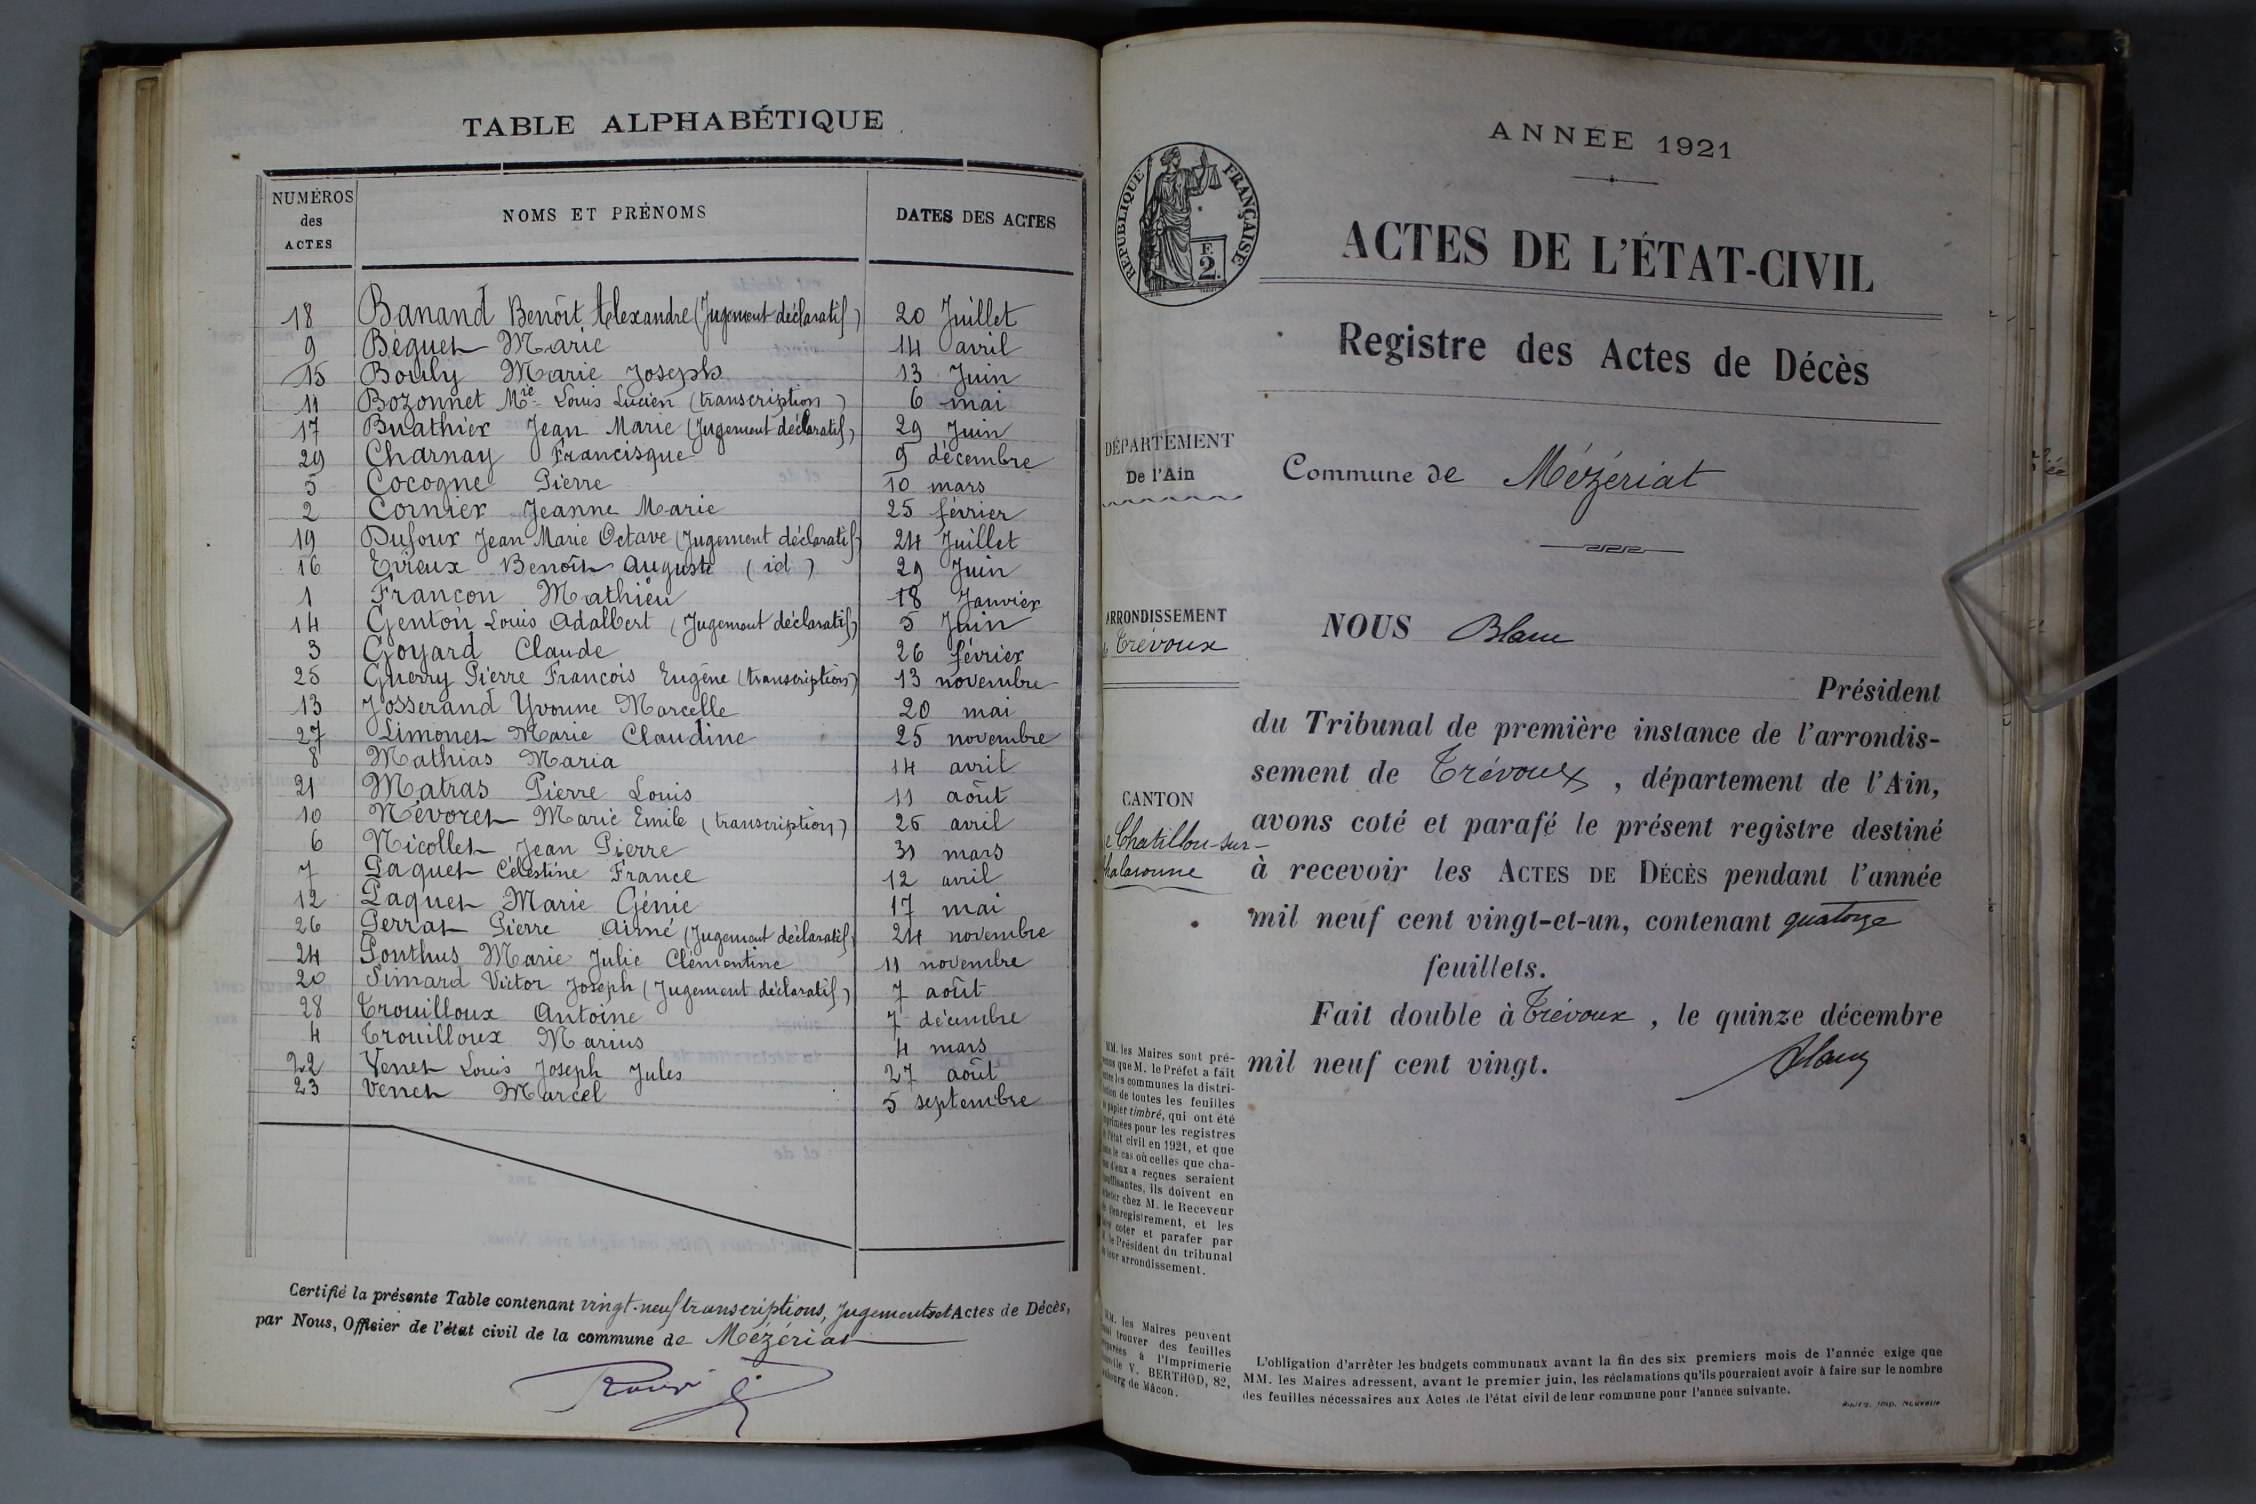 TABLE ALPHABÉTIQUE
NUMÉROS des ACTES NOMS ET PRÉNOMS DATES DES ACTES
18 Banand Benoît Alexandre (Jugement déclaratif) 20 Juillet
9 Béguet Marie 14 avril
15 Bouly Marie Joseph 13 Juin
11 Bozonnet Mie Louis Lucien (transcription) 6 mai
17 Buathier Jean Marie (Jugement déclaratif) 29 Juin
29 Charnay Francisque 9 décembre
5 Cocogne Pierre 10 mars
2 Cornier Jeanne Marie 25 février
19 Dufour Jean Marie Octave (Jugement déclaratif) 24 Juillet
16 Evieux Benoît Auguste (id) 29 Juin
1 Françon Mathieu 18 Janvier
14 Genton Louis Adalbert (Jugement déclaratif) 5 Juin
3 Goyard Claude 26 février
25 Guerry Pierre François Eugène (transcription) 13 novembre
13 Josserand Yvonne Marcelle 20 mai
27 Limonet Marie Claudine 25 novembre
8 Mathias Maria 14 avril
21 Matras Pierre Louis 11 août
10 Névoret Marie Emile (transcription) 26 avril
6 Nicollet Jean Pierre 31 mars
7 Paquet Célestine France 12 avril
12 Paquet Marie Génie 17 mai
26 Perrat Pierre Aimé (Jugement déclaratif) 24 novembre
24 Ponthus Marie Julie Clémentine 11 novembre
20 Simard Victor Joseph (Jugement déclaratif) 7 août
28 Trouilloux Antoine 7 décembre
4 Trouilloux Marius 4 mars
22 Venet Louis Joseph Jules 27 août
23 Venet Marcel 5 septembre
Certifié la présente Table contenant vingt-neuf transcriptions, Jugements et Actes de Décès,
par Nous, Officier de l'état civil de la commune de Mézériat
ANNÉE 1921
RÉPUBLIQUE FRANÇAISE
F.
2.
ACTES DE L'ÉTAT-CIVIL
Registre des Actes de Décès
DÉPARTEMENT
De l'Ain
Commune de Mézériat
ARRONDISSEMENT
de Trévoux
CANTON
de Chatillon-sur-
Chalaronne
NOUS Blanc
Président
du Tribunal de première instance de l'arrondis-
sement de Trévoux, département de l'Ain,
avons coté et parafé le présent registre destiné
à recevoir les ACTES DE DÉCÈS pendant l'année
mil neuf cent vingt-et-un, contenant quatorze
feuillets.
Fait double à Trévoux, le quinze décembre
mil neuf cent vingt.
Blanc
MM. les Maires sont pré-
que M. le Préfet a fait
les communes la distri-
de toutes les feuilles
papier timbré, qui ont été
pour les registres
l'état civil en 1921, et que
le cas où celles que cha-
d'eux a reçues seraient
ils doivent en
chez M. le Receveur
l'enregistrement, et les
coter et parafer par
le Président du tribunal
leur arrondissement.
MM. les Maires peuvent
trouver des feuilles
à l'Imprimerie
V. BERTHOD, 82,
de Mâcon.
L'obligation d'arrêter les budgets communaux avant la fin des six premiers mois de l'année exige que
MM. les Maires adressent, avant le premier juin, les réclamations qu'ils pourraient avoir à faire sur le nombre
des feuilles nécessaires aux Actes de l'état civil de leur commune pour l'année suivante.